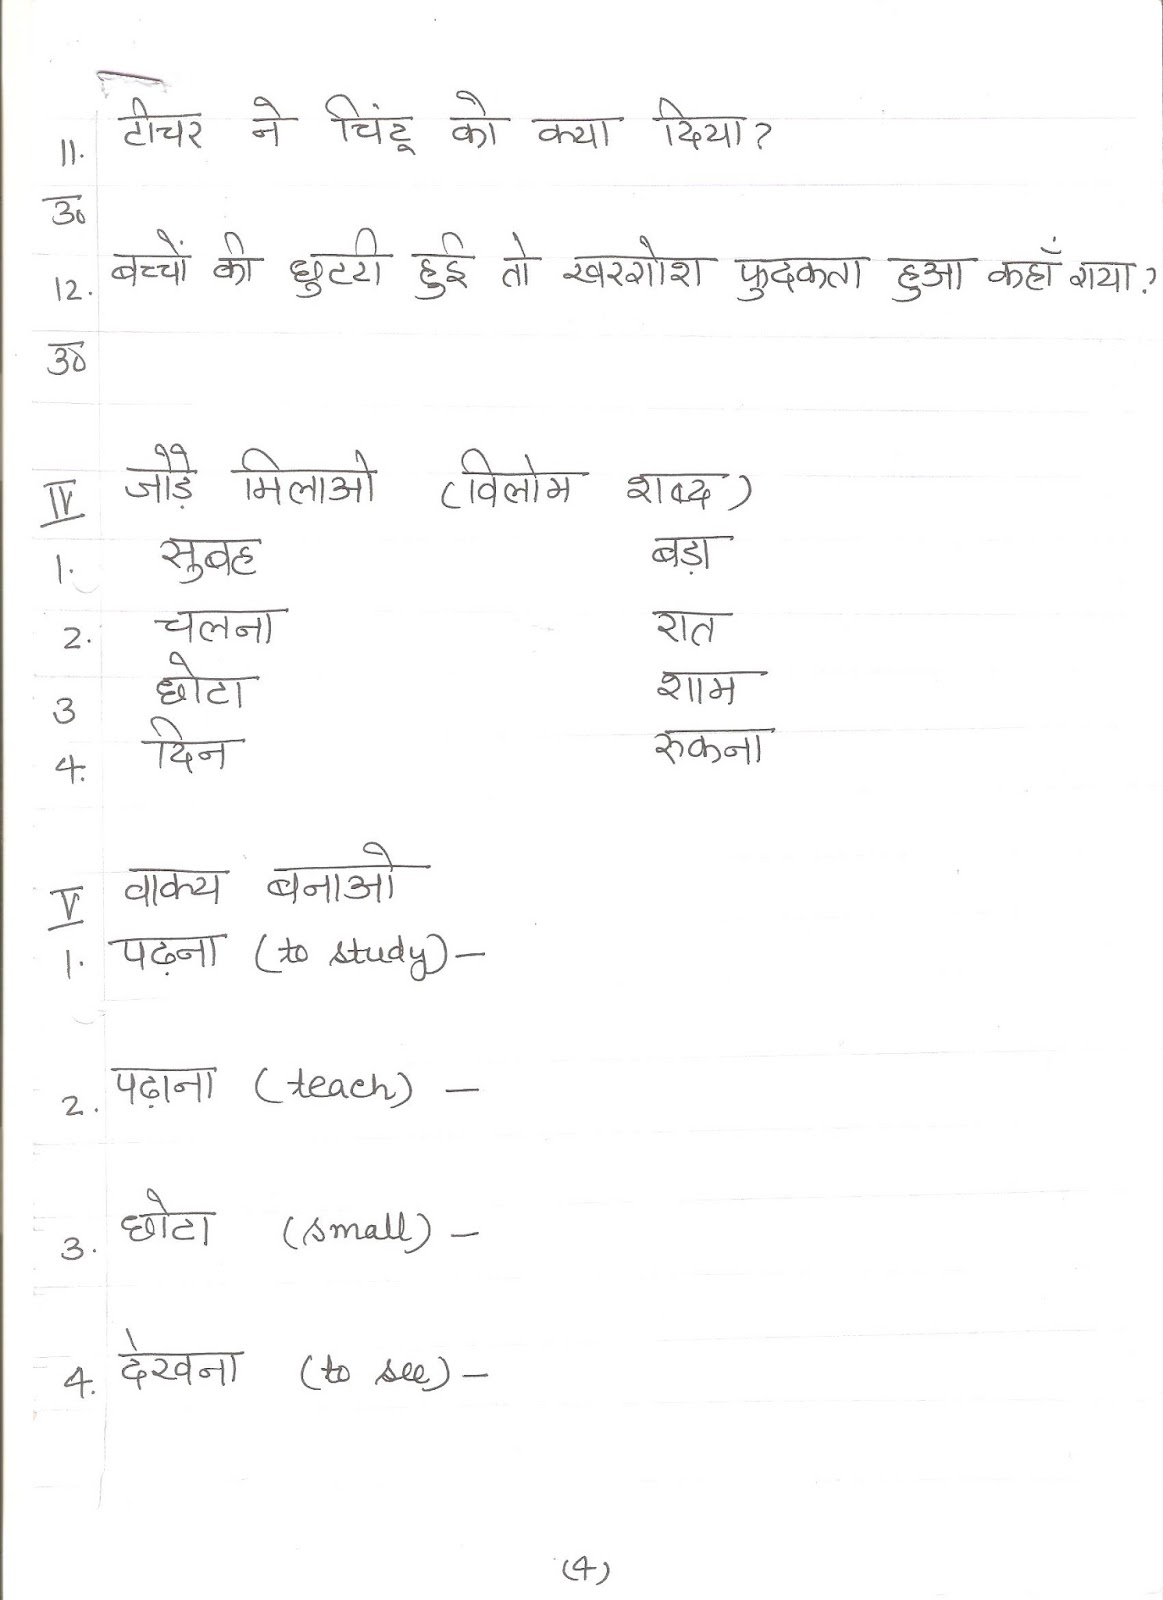 11. टीचर ने चिंटू को क्या दिया?
उ०
12. बच्चों की छुटटी हुई तो खरगोश फुदकता हुआ कहाँ गया?
उ०
IV जोड़े मिलाओ (विलोम शब्द)
1. सुबह बड़ा
2. चलना रात
3 छोटा शाम
4. दिन रुकना
V वाक्य बनाओ
1. पढ़ना (to study) –
2. पढ़ाना (teach) –
3. छोटा (small) –
4. देखना (to see) –
(4)